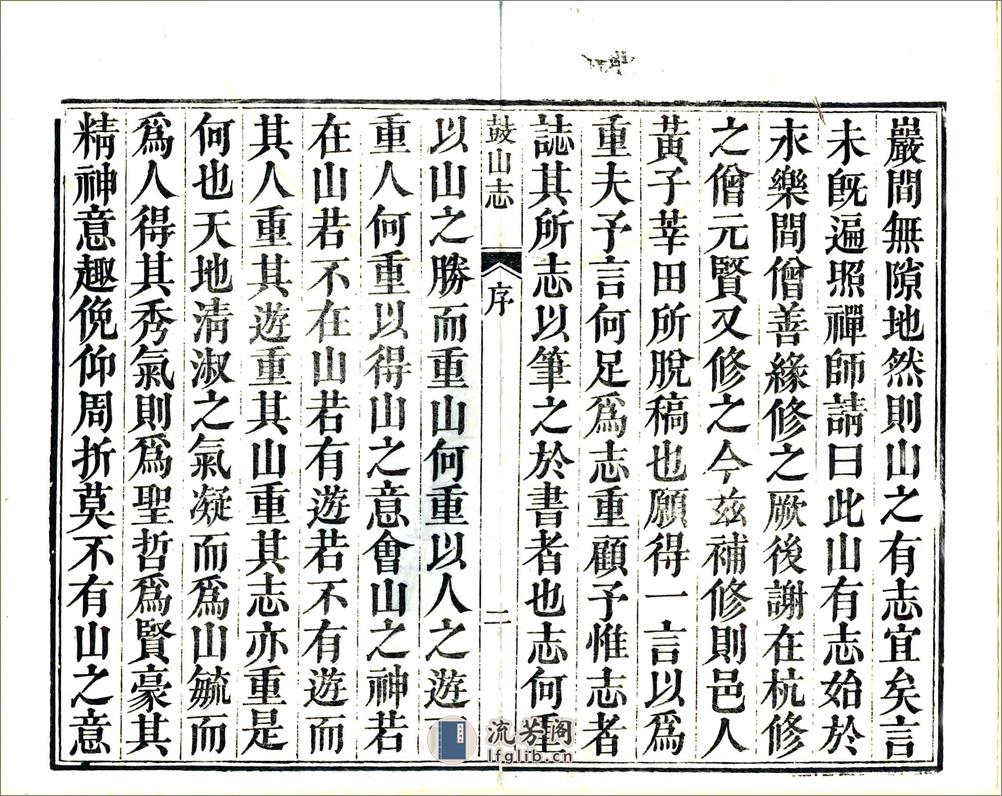 巖間無隙地然則山之有志宜矣言
未旣遍照禪師請曰此山有志始於
永樂間僧善緣修之厥後謝在杭修
之僧元賢又修之今茲補修則邑人
黃子莘田所脫稿也願得一言以爲
重夫予言何足爲志重顧予惟志者
誌其所志以筆之於書者也志何重
鼓山志
序
二
以山之勝而重山何重以人之遊而
重人何重以得山之意會山之神若
在山若不在山若有遊若不有遊而
其人重其遊重其山重其志亦重是
何也天地淸淑之氣凝而爲山毓而
爲人得其秀氣則爲聖哲爲賢豪其
精神意趣俛仰周折莫不有山之意
流芳阁
lfglib.cn